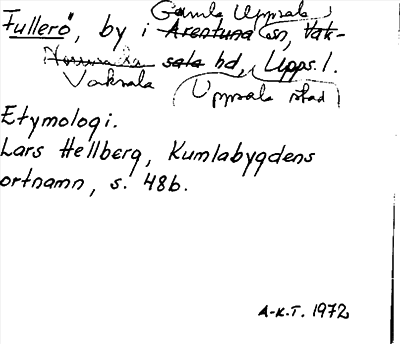 Gamla Uppsala
Fullerö, by i Arentuna sn, Vak-
sala hd, Upps. l.
Vaksala
Uppsala stad
Etymologi.
Lars Hellberg, Kumlabygdens
ortnamn, s. 48b.
A-K.T. 1972